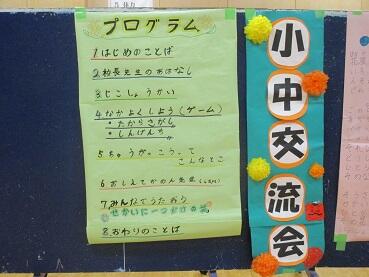 プログラム
1はじめのことば
2校長先生のおはなし
3じこしょうかい
4なかよくしよう(ゲーム)
・たからさがし
・しんげんち
5ちゅうがっこうって
こんなとこ
6おしえてかの人先生
7みんなでうたおう
せかいに一つだけの花
8おわりのことば
小中交流会